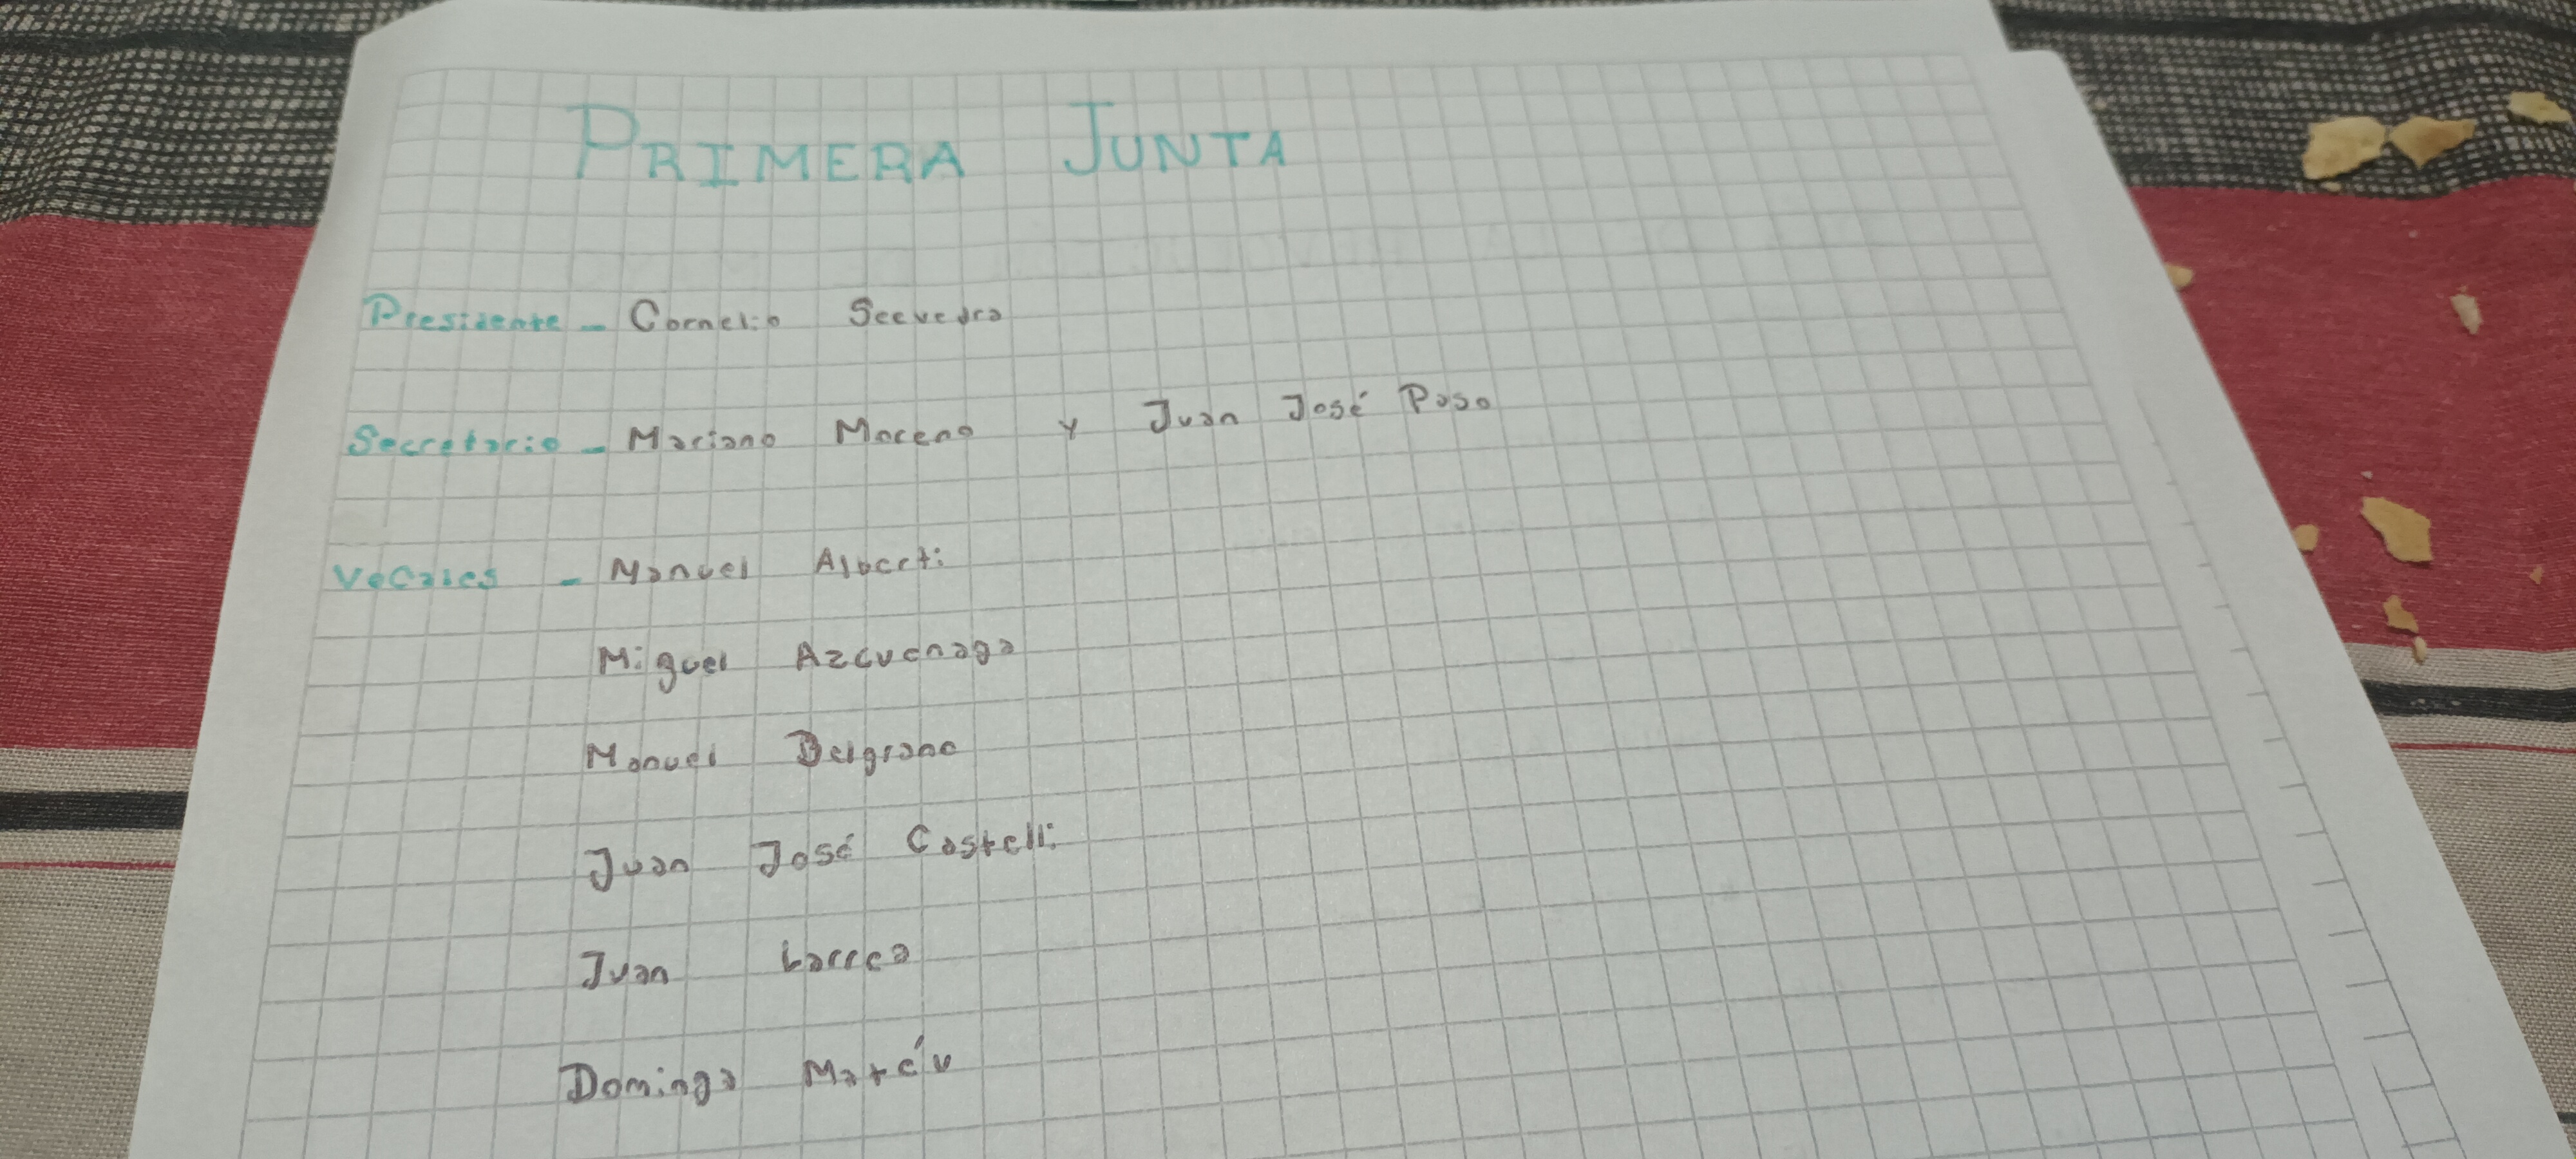 PRIMERA JUNTA
Presidente - Cornelio Seevedra
Secretario - Mariano Moreno y Juan José Paso
Vocales - Manuel Alberti
Miguel Azcuenaga
Manuel Belgrano
Juan José Castelli
Juan Larrea
Domingo Matéu